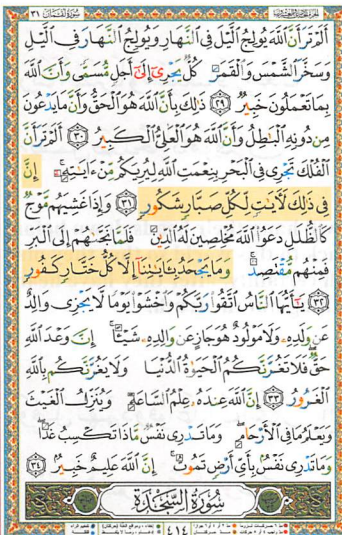 سورة لقمان ٣١
أَلَمْ تَرَ أَنَّ ٱللَّهَ يُولِجُ ٱلَّيْلَ فِى ٱلنَّهَارِ وَيُولِجُ ٱلنَّهَارَ فِى ٱلَّيْلِ
وَسَخَّرَ ٱلشَّمْسَ وَٱلْقَمَرَ كُلٌّ يَجْرِىٓ إِلَىٰٓ أَجَلٍ مُّسَمًّى وَأَنَّ ٱللَّهَ
بِمَا تَعْمَلُونَ خَبِيرٌ ٢٩ ذَٰلِكَ بِأَنَّ ٱللَّهَ هُوَ ٱلْحَقُّ وَأَنَّ مَا يَدْعُونَ
مِن دُونِهِ ٱلْبَٰطِلُ وَأَنَّ ٱللَّهَ هُوَ ٱلْعَلِىُّ ٱلْكَبِيرُ ٣٠ أَلَمْ تَرَ أَنَّ
ٱلْفُلْكَ تَجْرِى فِى ٱلْبَحْرِ بِنِعْمَتِ ٱللَّهِ لِيُرِيَكُم مِّنْ ءَايَٰتِهِۦٓ إِنَّ
فِى ذَٰلِكَ لَءَايَٰتٍ لِّكُلِّ صَبَّارٍ شَكُورٍ ٣١ وَإِذَا غَشِيَهُم مَّوْجٌ
كَٱلظُّلَلِ دَعَوُا۟ ٱللَّهَ مُخْلِصِينَ لَهُ ٱلدِّينَ فَلَمَّا نَجَّىٰهُمْ إِلَى ٱلْبَرِّ
فَمِنْهُم مُّقْتَصِدٌ وَمَا يَجْحَدُ بِـَٔايَٰتِنَآ إِلَّا كُلُّ خَتَّارٍ كَفُورٍ
٣٢ يَٰٓأَيُّهَا ٱلنَّاسُ ٱتَّقُوا۟ رَبَّكُمْ وَٱخْشَوْا۟ يَوْمًا لَّا يَجْزِى وَالِدٌ
عَن وَلَدِهِۦ وَلَا مَوْلُودٌ هُوَ جَازٍ عَن وَالِدِهِۦ شَيْـًٔا إِنَّ وَعْدَ ٱللَّهِ
حَقٌّ فَلَا تَغُرَّنَّكُمُ ٱلْحَيَوٰةُ ٱلدُّنْيَا وَلَا يَغُرَّنَّكُم بِٱللَّهِ
ٱلْغَرُورُ ٣٣ إِنَّ ٱللَّهَ عِندَهُۥ عِلْمُ ٱلسَّاعَةِ وَيُنَزِّلُ ٱلْغَيْثَ
وَيَعْلَمُ مَا فِى ٱلْأَرْحَامِ وَمَا تَدْرِى نَفْسٌ مَّاذَا تَكْسِبُ غَدًا
وَمَا تَدْرِى نَفْسٌۢ بِأَىِّ أَرْضٍ تَمُوتُ إِنَّ ٱللَّهَ عَلِيمٌ خَبِيرٌۢ ٣٤
سُورَةُ السَّجْدَةِ
٤١٤